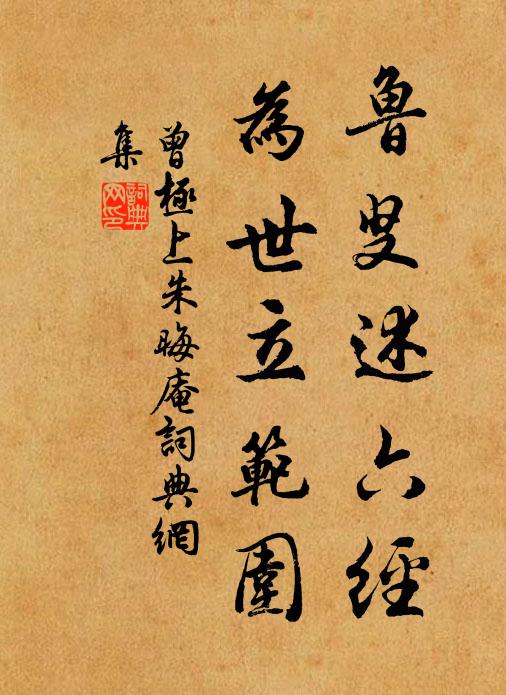 魯叟述六經
為世立範圍
曾極上朱晦庵詞典網
集
詞典
网印